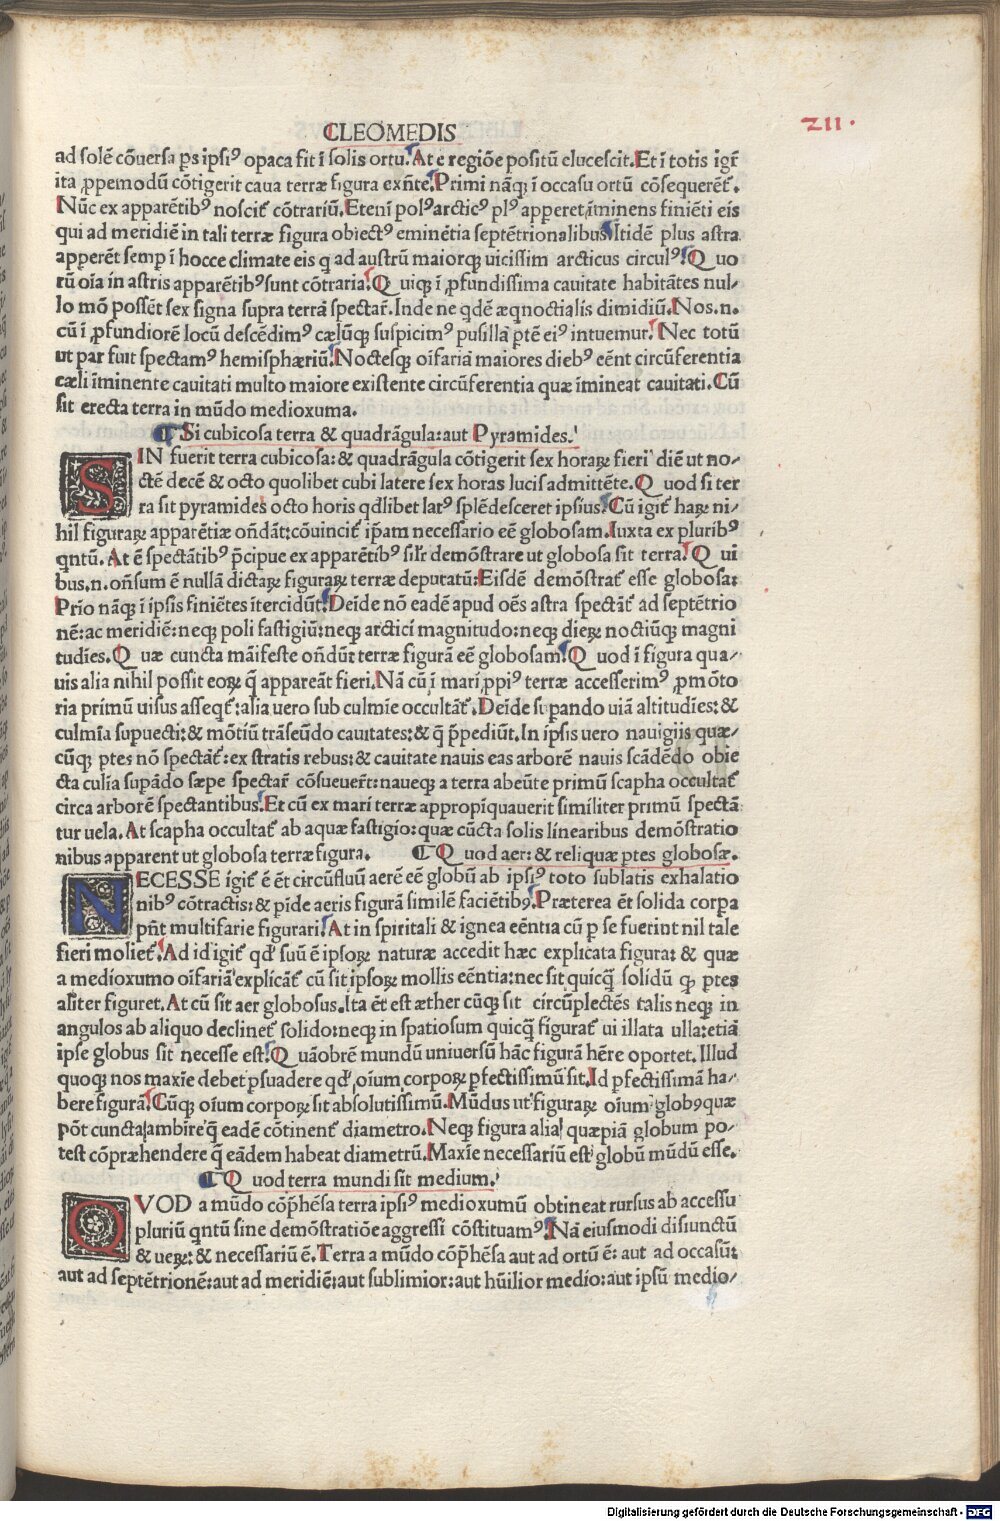 CLEOMEDIS
211.
ad solē cōuersa ꝑs ipsiꝰ opaca fit ī solis ortu. At e regiōe positū elucescit. Et ī totis igr̄
ita ꝓpemodū cōtigerit caua terræ figura exn̄te. Primi nāqꝫ ī occasu ortū cōsequerēt̄.
Nūc ex apparētibꝰ noscit̄ cōtrariū. Etenī polꝰ arcticꝰ plꝰ apperet īminens finiēti eis
qui ad meridiē in tali terræ figura obiectꝰ eminētia septētrionalibus. Itidē plus astra
apperēt semp ī hocce climate eis q ad austrū maiorqꝫ uicissim arcticus circulꝰ. Quo
rū oīa in astris apparētibꝰ sunt cōtraria. Quiqꝫ ī ꝓfundissima cauitate habitātes nul-
lo mō possēt sex signa supra terrā spectar̄. Inde ne qdē æqnoctialis dimidiū. Nos .n.
cū ī ꝓfundiorē locū descēdimꝰ cælūqꝫ suspicimꝰ pusillā ptē eiꝰ intuemur. Nec totū
ut par fuit spectamꝰ hemisphæriū. Noctesqꝫ oīfariā maiores diebꝰ eēnt circūferentia
cæli īminente cauitati multo maiore existente circūferentia quæ īmineat cauitati. Cū
sit erecta terra in mūdo medioxuma.
¶ Si cubicosa terra & quadrāgula: aut Pyramides.
SIN fuerit terra cubicosa: & quadrāgula cōtigerit sex horaꝝ fieri diē ut no-
ctē decē & octo quolibet cubi latere sex horas lucis admittēte. Quod si ter
ra sit pyramides octo horis qdlibet latꝰ splēdesceret ipsius. Cū igit̄ haꝝ ni-
hil figuraꝝ apparētiæ on̄dāt: cōuincit̄ ip̄am necessario eē globosam. Iuxta ex pluribꝰ
qntū. At ē spectātibꝰ p̄cipue ex apparētibꝰ sil̄r demōstrare ut globosa sit terra. Qui
bus .n. on̄sum ē nullā dictaꝝ figuraꝝ terræ deputatū: Eisdē demōstrat̄ esse globosa:
Prīo nāqꝫ ī ipsis finiētes ītercidūt. Deīde nō eadē apud oēs astra spectāt̄ ad septētrio
nē: ac meridiē: neqꝫ poli fastigiū: neqꝫ arctici magnitudo: neqꝫ dieꝝ noctiūqꝫ magni
tudīes. Quæ cuncta māifeste on̄dūt terræ figurā eē globosam. Quod ī figura qua-
uis alia nihil possit eoꝝ q̄ appareāt fieri. Nā cū ī mari ꝓpiꝰ terræ accesserimꝰ ꝓmōto
ria primū uisus asseqt̄: alia uero sub culmīe occultāt̄. Deīde supando uiā altitudīes: &
culmīa supuecti: & mōtiū trāseūdo cauitates: & q̄ p̄pediūt. In ipsis uero nauigiis quæ-
cūqꝫ ptes nō spectāt̄: ex stratis rebus: & cauitate nauis eas arborē nauis scādēdo obie
cta culīa supādo sæpe spectar̄ cōsueuer̄t: naueqꝫ a terra abeūte primū scapha occultat̄
circa arborē spectantibus. Et cū ex mari terræ appropīquauerit similiter primū spectā
tur uela. At scapha occultat̄ ab aquæ fastigio: quæ cūcta solis linearibus demōstratio
nibus apparent ut globosa terræ figura. ¶ Quod aer: & reliquæ ptes globosæ.
NECESSE īgit̄ ē ēt circūfluū aerē eē globū ab ipsiꝰ toto sublatis exhalatio
nibꝰ cōtractis: & pīde aeris figurā similē faciētibꝰ. Præterea ēt solida corpa
pn̄t multifarie figurari. At in spiritali & ignea eēntia cū p se fuerint nil tale
fieri moliet̄. Ad id igit̄ qd suū ē ipsoꝝ naturæ accedit hæc explicata figura: & quæ
a medioxumo oīfariā explicāt̄ cū sit ipsoꝝ mollis eēntia: nec sit quicq̄ solidū qꝫ ptes
aliter figuret. At cū sit aer globosus. Ita ēt est æther cūqꝫ sit circūplectēs talis neqꝫ in
angulos ab aliquo declinet̄ solido: neqꝫ in spatiosum quicq̄ figurat̄ ui illata ulla: etiā
ipse globus sit necesse est. Quāobrē mundū uniuersū hāc figurā hēre oportet. Illud
quoqꝫ nos maxīe debet psuadere qd oīum corpoꝝ pfectissimū sit. Id pfectissimā ha-
bere figurā. Cūqꝫ oīum corpoꝝ sit absolutissimū. Mūdus ut figuraꝝ oīum globꝰ quæ
pōt cuncta ambire q̄ eadē cōtinent̄ diametro. Neqꝫ figura alia quæpiā globum po-
test cōpræhendere q̄ eādem habeat diametrū. Maxīe necessariū est globū mūdū esse.
¶ Quod terra mundi sit medium.
QVOD a mūdo cōp̄hēsa terra ipsiꝰ medioxumū obtineat rursus ab accessu
pluriū qntū sine demōstratiōe aggressi cōstituamꝰ. Nā eiusmodi disiunctū
& ueꝝ: & necessariū ē. Terra a mūdo cōp̄hēsa aut ad ortū ē: aut ad occasū:
aut ad septētrionē: aut ad meridiē: aut sublimior: aut hūilior medio: aut ipsū medio-
Digitalisierung gefördert durch die Deutsche Forschungsgemeinschaft - DFG